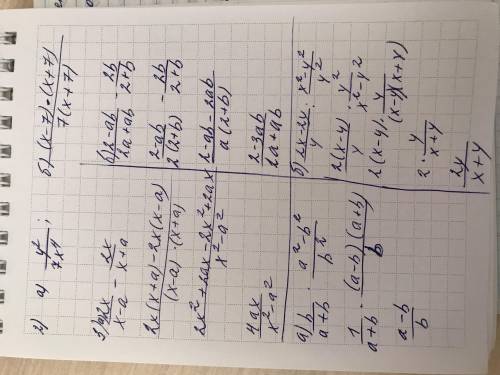 2) а) y²/7x⁴ ; б) (x-7)·(x+7)/7(x+7)
3) а) 2x/x-a - 2x/x+a
2x(x+a)-2x(x-a)/(x-a)·(x+a)
2x²+2ax-2x²+2ax/x²-a²
4ax/x²-a²
б) 2-ab/2a+ab - 2b/2+b
2-ab/2(2+b) - 2b/2+b
2-ab-2ab/a(2+b)
2-3ab/2a+ab
а) b/a+b · a²-b²/b²
1/a+b · (a-b)(a+b)/b
a-b/b
б) 2x-2y/y : x²-y²/y²
2(x-y)/y · y²/x²-y²
2(x-y)· y/(x-y)(x+y)
2· y/x+y
2y/x+y